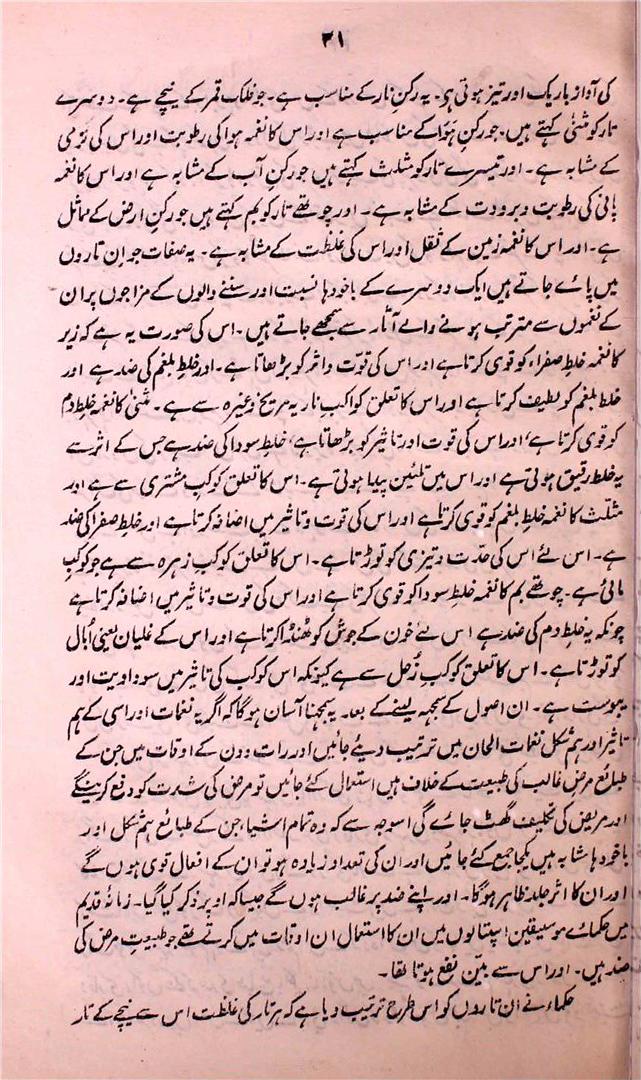 ۳۱
کی آواز باریک اور تیز ہوتی ہو۔ یہ رکنِ نار کے مناسب ہے۔ جو فلک قمر کے نیچے ہے۔ دوسرے
تار کو مثنیٰ کہتے ہیں، جو رکنِ ہوَا کے مناسب ہے اور اس کا نغمہ ہوا کی رطوبت اور اس کی نرمی
کے مشابہ ہے۔ اور تیسرے تار کو مثلث کہتے ہیں جو رکنِ آب کے مشابہ ہے اور اس کا نغمہ
پانی کی رطوبت و برودت کے مشابہ ہے۔ اور چوتھے تار کو بم کہتے ہیں جو رکنِ ارض کے مماثل
ہے۔ اور اس کا نغمہ زمین کے ثقل اور اس کی غلظت کے مشابہ ہے۔ یہ صفات جو اِن تاروں
میں پائے جاتے ہیں ایک دوسرے کے باخودہا نسبت اور سننے والوں کے مزاجوں پر ان
کے نغموں سے مترتب ہونے والے آثار سے سمجھے جاتے ہیں۔ اس کی صورت یہ ہے کہ زیر
کا نغمہ خلطِ صفراء کو قوی کرتا ہے اور اس کی قوّت و اثر کو بڑھاتا ہے۔ اور خلطِ بلغم کی ضد ہے اور
خلط بلغم کو لطیف کرتا ہے اور اس کا تعلق کواکب ناریہ مریخ وغیرہ سے ہے۔ مثنیٰ کا نغمہ خلطِ دم
کو قوی کرتا ہے، اور اس کی قوت اور تاثیر کو بڑھاتا ہے، خلطِ سودا کی ضد ہے جس کے اثر سے
یہ خلط رقیق ہوتی ہے اور اس میں تلئین پیدا ہوتی ہے۔ اس کا تعلق کوکبِ مشتری سے ہے اور
مثلث کا نغمہ خلطِ بلغم کو قوی کرتا ہے اور اس کی قوت و تاثیر میں اضافہ کرتا ہے اور خلطِ صفرا کی ضد
ہے۔ اس لئے اس کی حدّت و تیزی کو توڑتا ہے۔ اس کا تعلق کوکبِ زہرہ سے ہے جو کوکبِ
مائی ہے۔ چوتھے بم کا نغمہ خلطِ سودا کو قوی کرتا ہے اور اس کی قوت و تاثیر میں اضافہ کرتا ہے
چونکہ یہ خلطِ دم کی ضد ہے اس لئے خون کے جوش کو ٹھنڈا کرتا ہے اور اس کے غلیان یعنی اُبال
کو توڑتا ہے۔ اس کا تعلق کوکبِ زُحل سے ہے کیونکہ اس کوکب کی تاثیر میں سوداویت اور
یبوست ہے۔ ان اصول کے سمجھ لینے کے بعد۔ یہ سمجہنا آسان ہوگا کہ اگر یہ نغمات اور اسی کے ہم
تاثیر اور ہم شکل نغمات الحان میں ترتیب دیئے جائیں اور رات و دن کے اوقات میں جن کے
طبائع مرضِ غالب کی طبیعت کے خلاف ہیں استعمال کئے جائیں تو مرض کی شدت کو دفع کرینگے
اور مریض کی تکلیف گھٹ جائے گی اسوجہ سے کہ وہ تمام اشیا، جن کے طبائع ہم شکل اور
باخودہا مشابہ ہیں یکجا جمع کئے جائیں اور ان کی تعداد زیادہ ہو تو ان کے افعال قوی ہوں گے
اور ان کا اثر جلد ظاہر ہوگا۔ اور اپنے ضد پر غالب ہوں گے جیسا کہ اوپر ذکر کیا گیا۔ زمانۂ قدیم
میں حکمائے موسیقین اسپتالوں میں ان کا استعمال ان اوقات میں کرتے تھے جو طبیعتِ مرض کی
ضد ہیں۔ اور اس سے بیّن نفع ہوتا تھا۔
حکماء نے ان تاروں کو اس طرح ترتیب دیا ہے کہ ہر تار کی غلظت اس سے نیچے کے تار